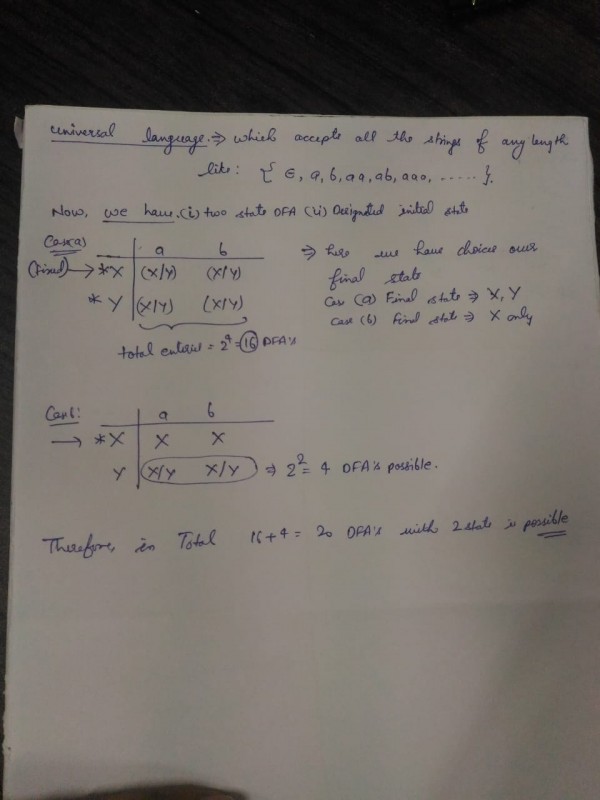 universal language. ⇒ which accepts all the strings of any length
like: { ∈, a, b, aa, ab, aaa, ..... }.
Now, we have. (i) two state DFA (ii) Designated initial state
Case(a)
a b
(fixed) → *X (X/Y) (X/Y)
* Y (X/Y) (X/Y)
total enteries = 2⁴ = 16 DFA's
⇒ here we have choice over
final state
Case (a) Final state ⇒ X, Y
case (b) final state ⇒ X only
Case b:
a b
→ *X X X
Y X/Y X/Y ⇒ 2² = 4 DFA's possible.
Therefore, in Total 16+4 = 20 DFA's with 2 state is possible